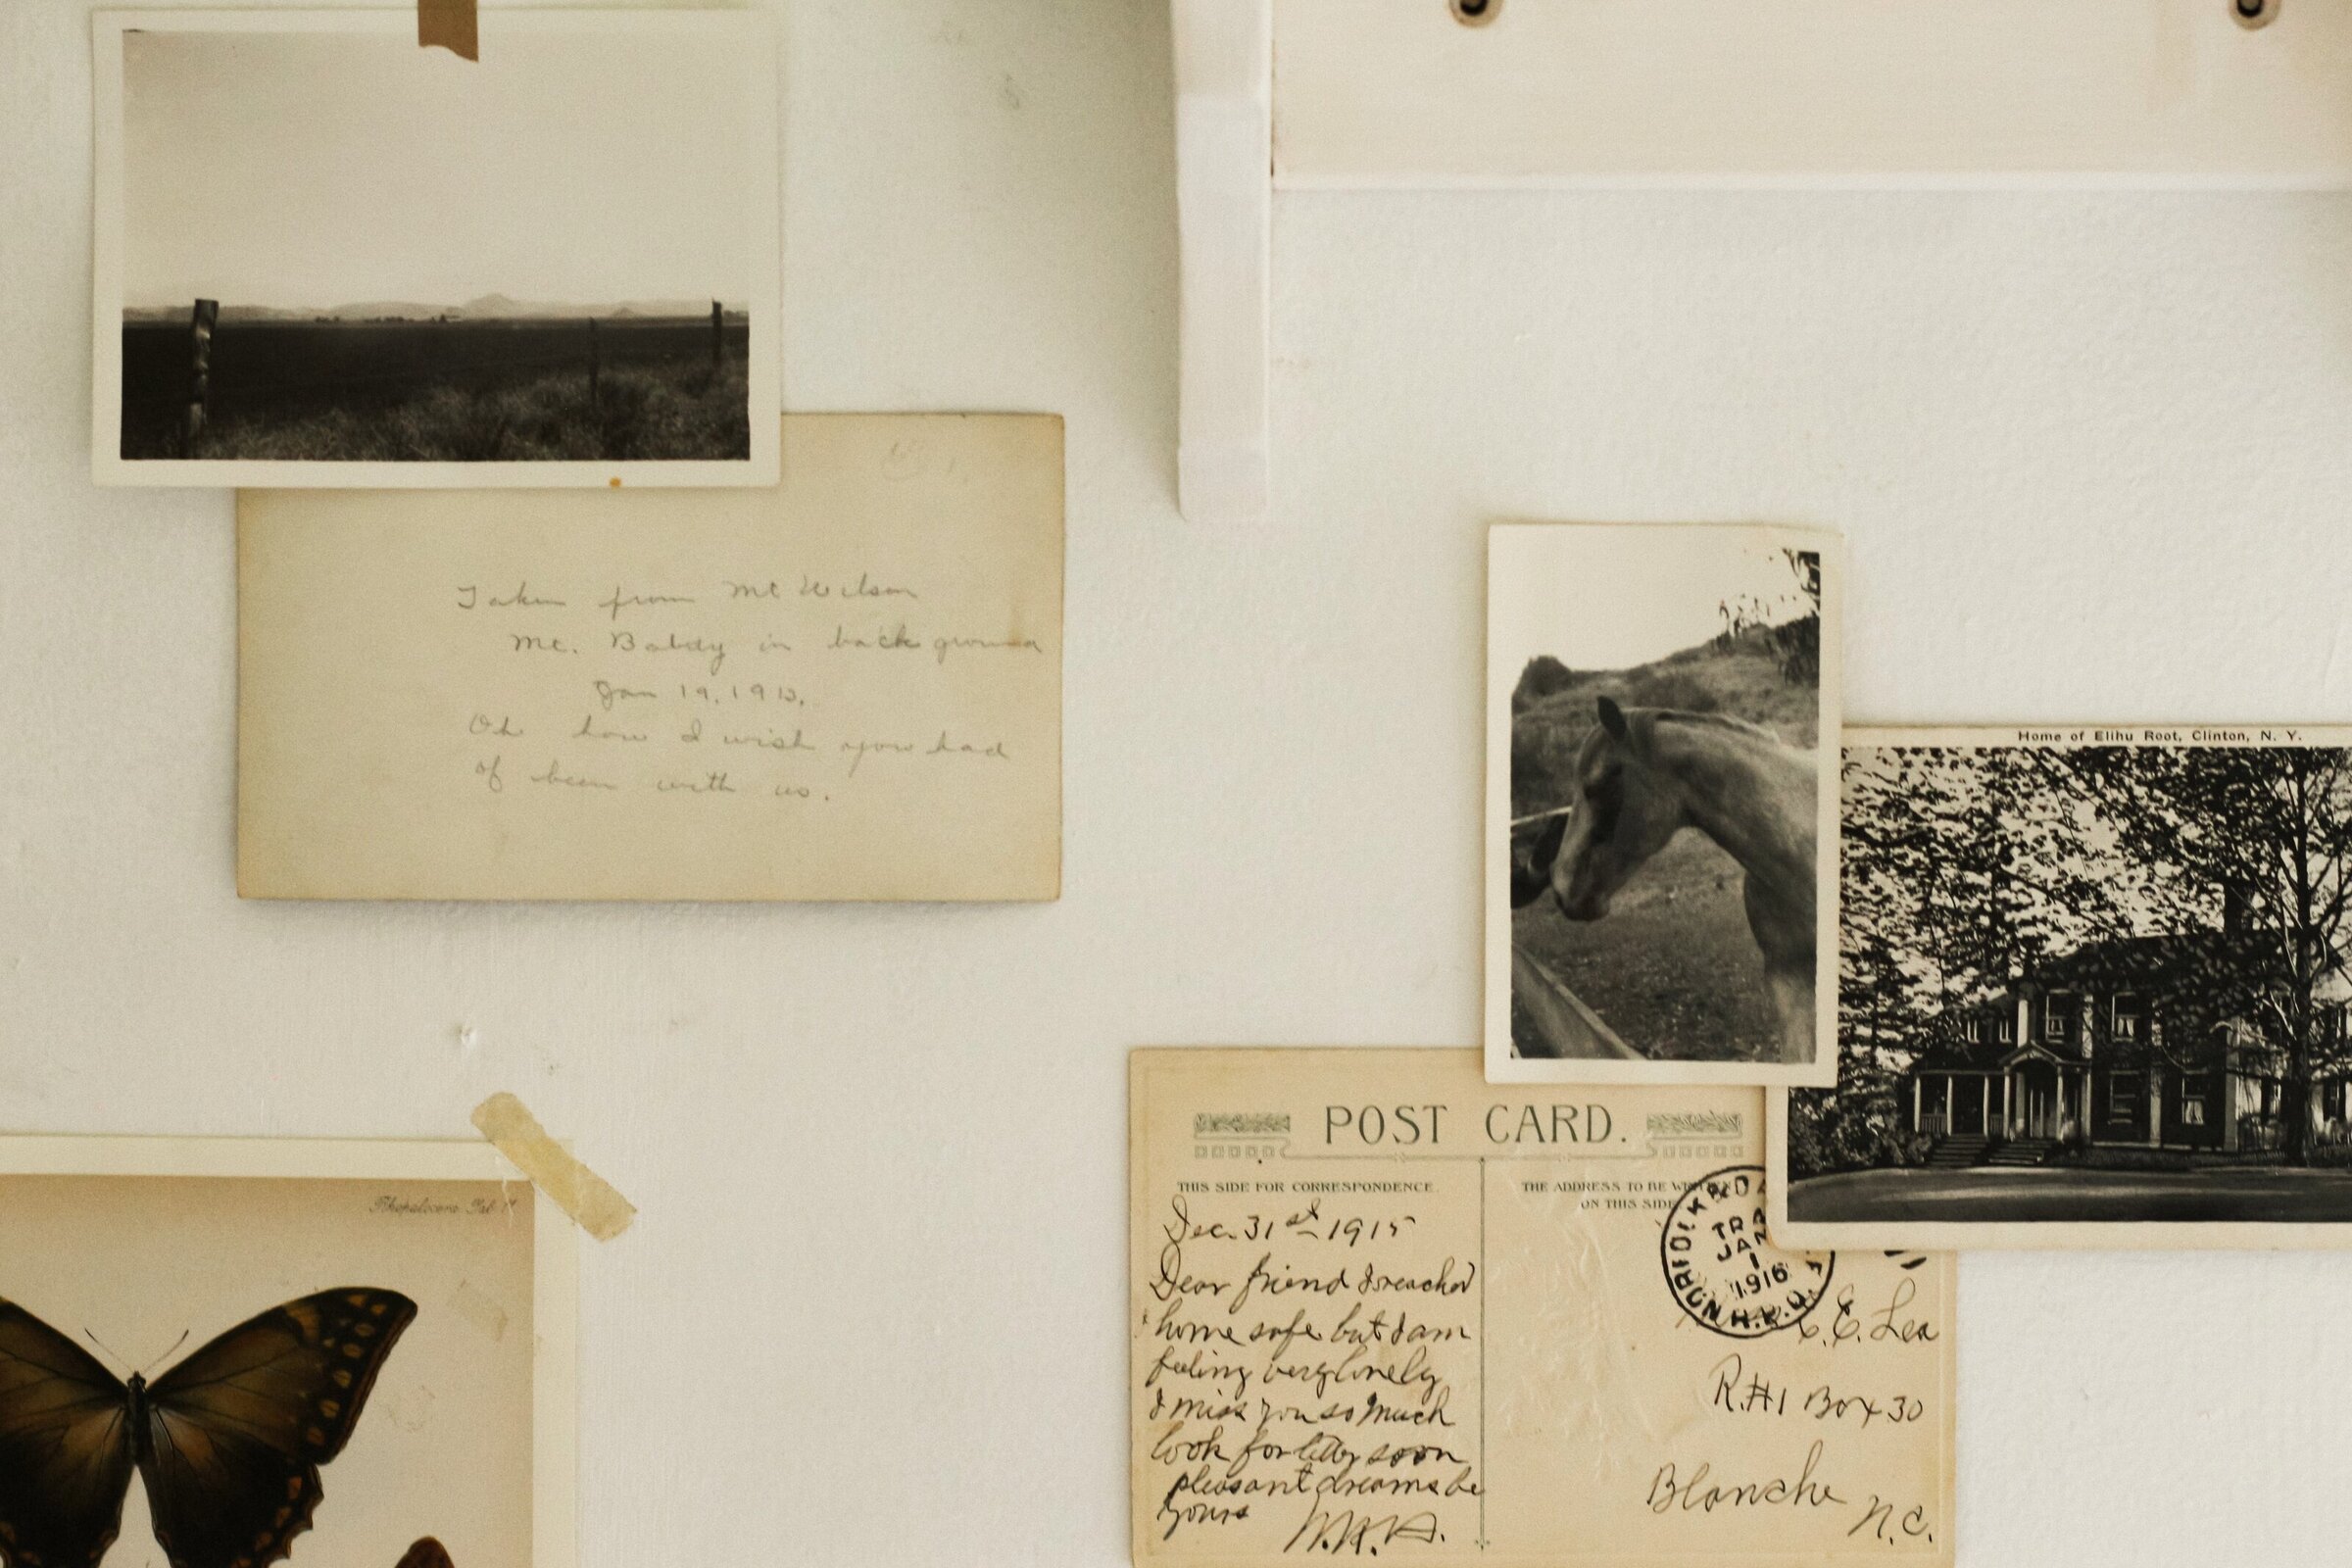 Taken from Mt Wilson
Mt. Baldy in back ground
Jan 19, 1913.
Oh how I wish you had
of been with us.
Home of Elihu Root, Clinton, N. Y.
POST CARD.
THIS SIDE FOR CORRESPONDENCE.
THE ADDRESS TO BE
ON THIS SIDE
Dec. 31st 1915
Dear friend I reached
home safe but I am
feeling very lonely
I miss you so much
look for letter soon
pleasant dreams be
yours
JAN
1
1916
R.P.O.
C. E. Lea
R.#1 Box 30
Blanche
N.C.